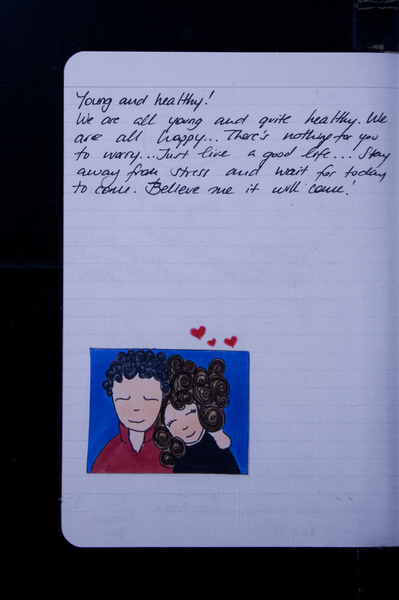 Young and healthy!
We are all young and quite healthy. We
are all happy... There's nothing for you
to worry... Just live a good life... Stay
away from stress and wait for today
to come. Believe me it will come!